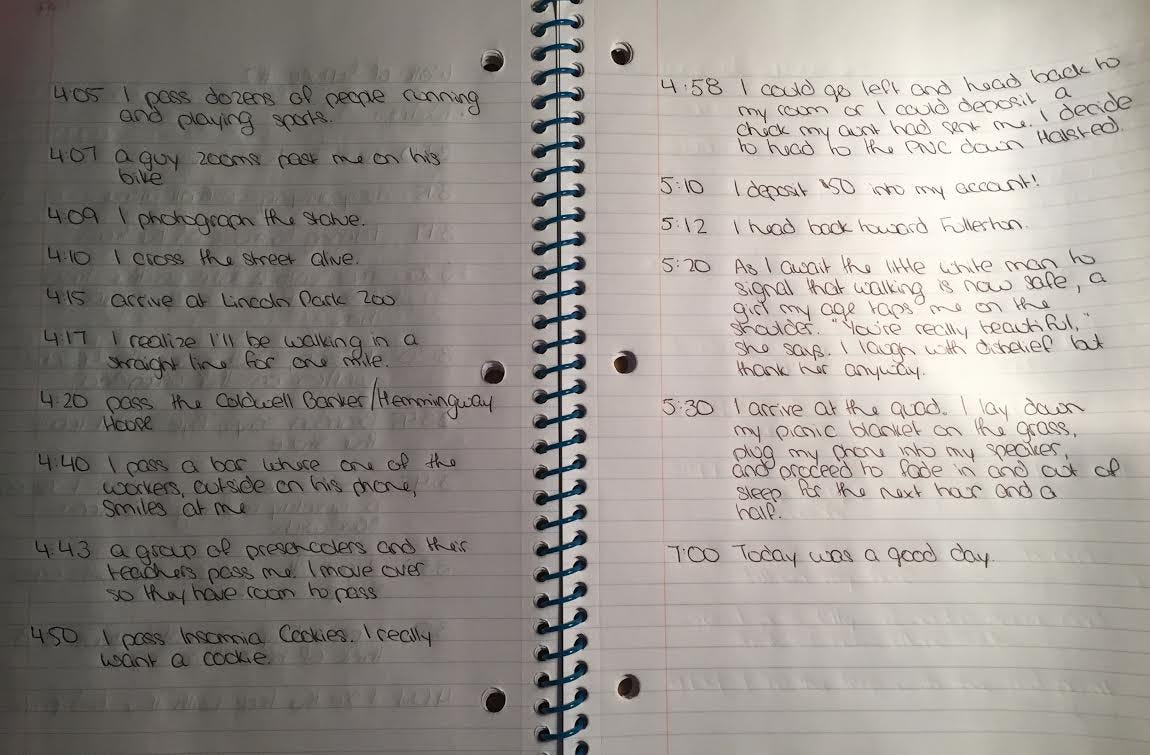 4:05 I pass dozens of people running
and playing sports.
4:07 a guy zooms past me on his
bike
4:09 I photograph the statue.
4:10 I cross the street alive.
4:15 arrive at Lincoln Park Zoo
4:17 I realize I'll be walking in a
straight line for one mile.
4:20 pass the Coldwell Banker/Hemmingway
House
4:40 I pass a bar where one of the
workers, outside on his phone,
smiles at me
4:43 a group of preschoolers and their
teachers pass me. I move over
so they have room to pass
4:50 I pass Insomnia Cookies. I really
want a cookie.
4:58 I could go left and head back to
my room or I could deposit a
check my aunt had sent me. I decide
to head to the PNC down Halsted.
5:10 I deposit $50 into my account!
5:12 I head back toward Fullerton.
5:20 As I await the little white man to
signal that walking is now safe, a
girl my age taps me on the
shoulder. "You're really beautiful,"
she says. I laugh with disbelief but
thank her anyway.
5:30 I arrive at the quad. I lay down
my picnic blanket on the grass,
plug my phone into my speaker,
and proceed to fade in and out of
sleep for the next hour and a
half.
7:00 Today was a good day.